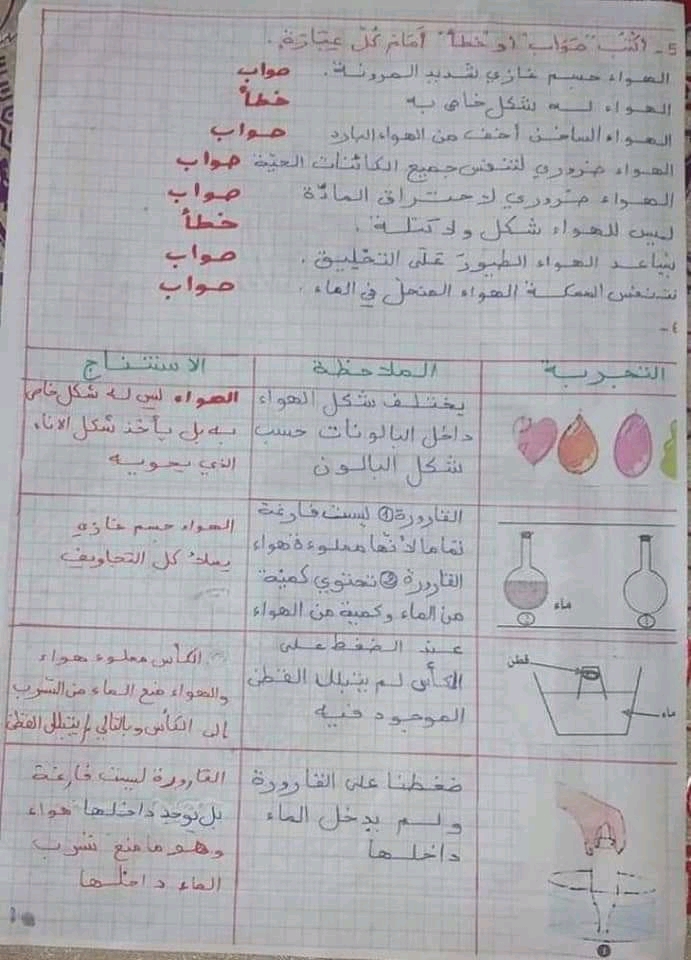 5- أكتب "صواب" أو "خطأ" أمام كل عبارة.
الهواء جسم غازي شديد المرونة. صواب
الهواء له شكل خاص به خطأ
الهواء الساخن أخف من الهواء البارد صواب
الهواء ضروري لتنفس جميع الكائنات الحية صواب
الهواء ضروري لاحتراق المادة صواب
ليس للهواء شكل ولا كتلة. خطأ
يساعد الهواء الطيور على التحليق. صواب
تتنفس السمكة الهواء المنحل في الماء. صواب
٤-
التجربة الملاحظة الاستنتاج
يختلف شكل الهواء
داخل البالونات حسب
شكل البالون
الهواء ليس له شكل خاص
به بل يأخذ شكل الاناء
الذي يحويه
القارورة ① ليست فارغة
تماما لأنها مملوءة هواء
القارورة ② تحتوي كمية
من الماء وكمية من الهواء
الهواء جسم غازي
يملأ كل التجاويف
ماء
عند الضغط على
الكأس لم يتبلل القطن
الموجود فيه
الكأس مملوء هواء
والهواء منع الماء من التسرب
إلى الكأس وبالتالي لم يتبلل القطن
قطن
ماء
ضغطنا على القارورة
ولم يدخل الماء
داخلها
القارورة ليست فارغة
بل يوجد داخلها هواء
وهو ما منع تسرب
الماء داخلها